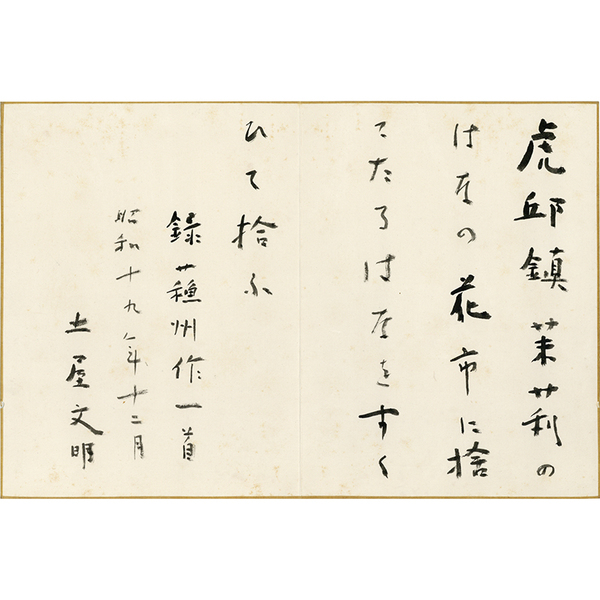 虎邱鎮茉莉の
はなの花市に捨
てたるはなをすく
ひて拾ふ
録蘇州作一首
昭和十九年十二月
土屋文明